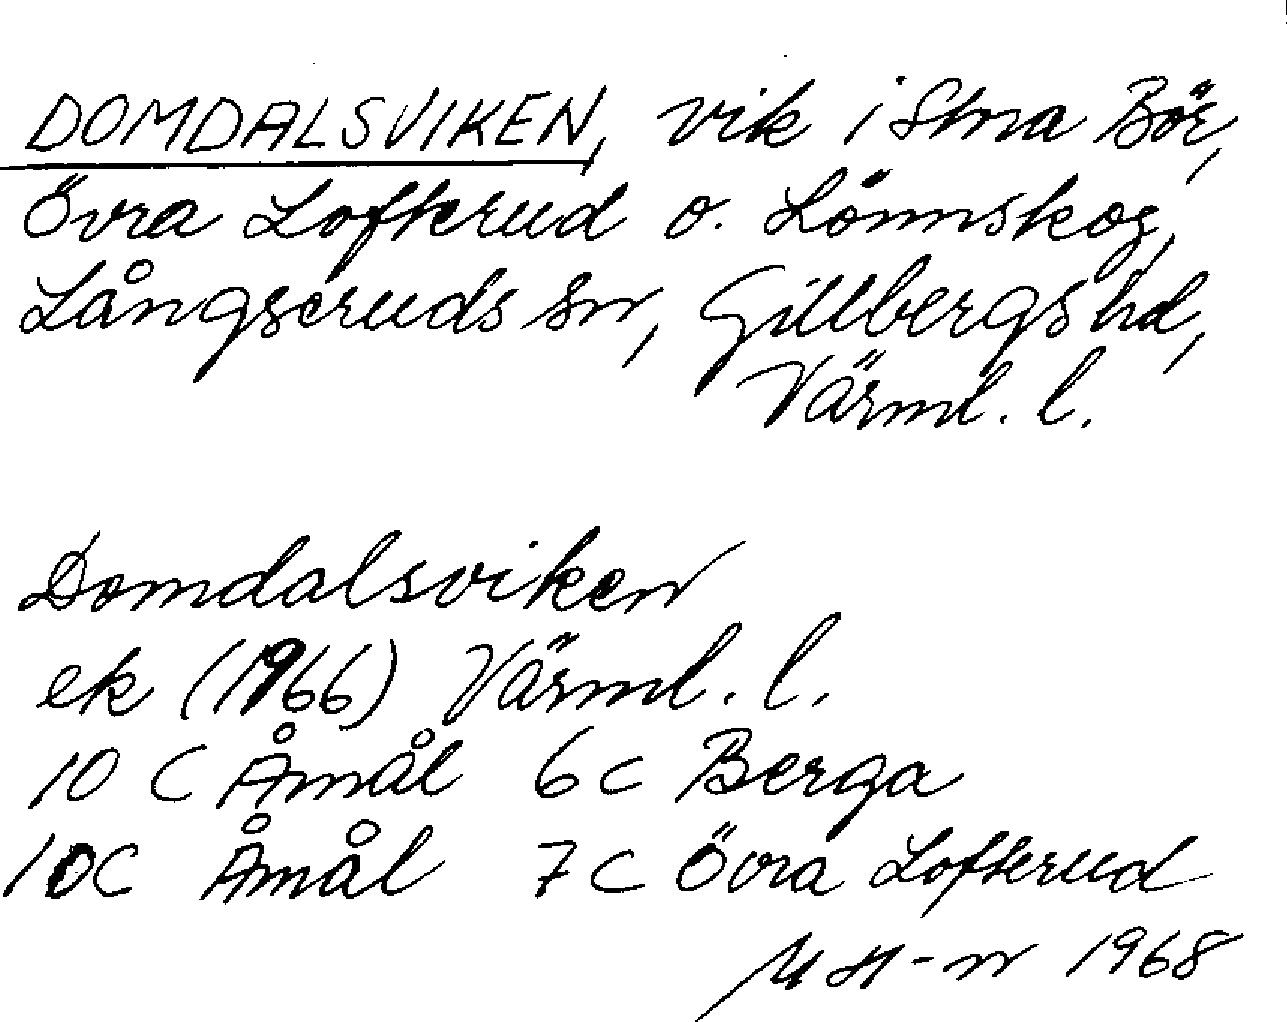 DOMDALSVIKEN, vik i Stora Bör,
Övra Lofterud o. Lönnskog,
Långseruds sn, Gillbergs hd,
Värml. l.
Domdalsviken
ek (1966) Värml. l.
10 C Åmål 6 c Berga
10C Åmål 7 c Övra Lofterud
1968